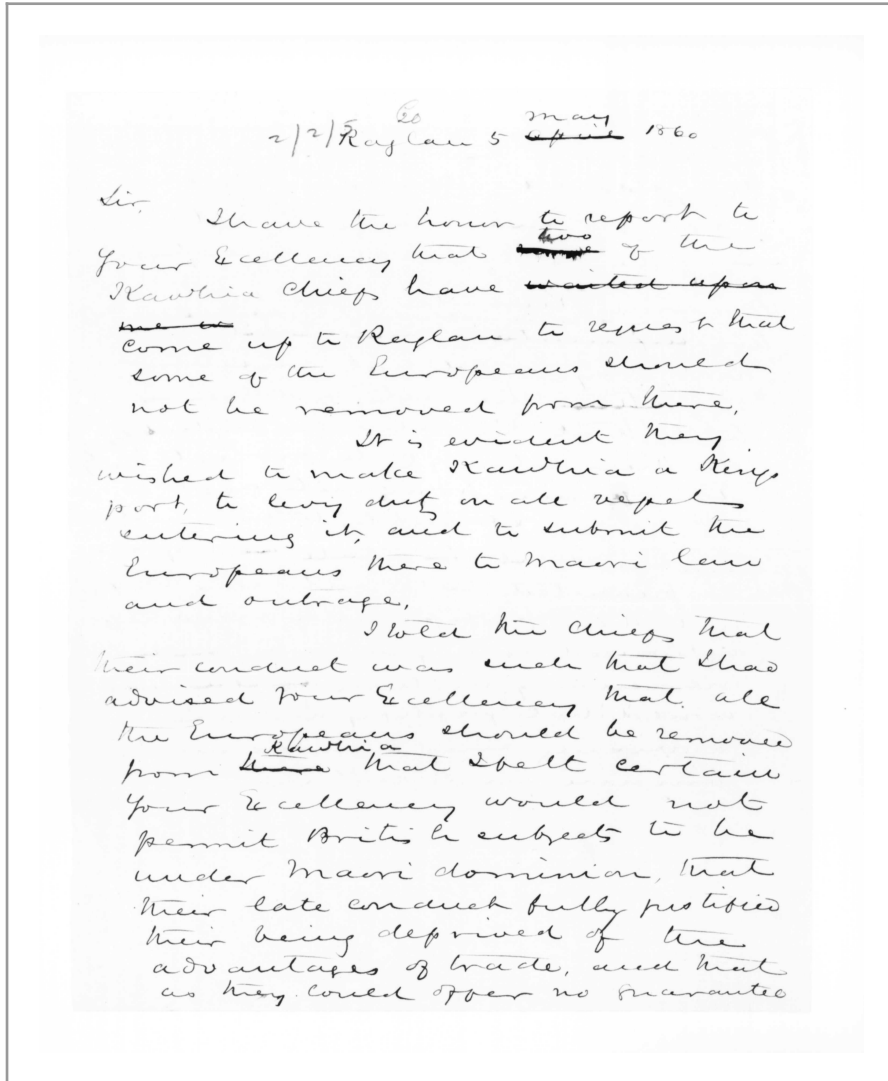 Raglan 5 ~~April~~ May 1860
Sir,
I have the honor to report to
Your Excellency that two of the
Kawhia Chiefs have ~~waited upon~~
~~me to~~
come up to Raglan to request that
some of the Europeans should
not be removed from there,
It is evident they
wished to make Kawhia a Kings
port, to levy duty on all vessels
entering it, and to submit the
Europeans there to Maori law
and outrage,
I told the Chiefs that
their conduct was such that I had
advised Your Excellency that all
the Europeans should be removed
from ~~there~~ Kawhia that I felt certain
Your Excellency would not
permit British subjects to be
under Maori dominion, that
their late conduct fully justified
their being deprived of the
advantages of trade, and that
as they could offer no guarantee